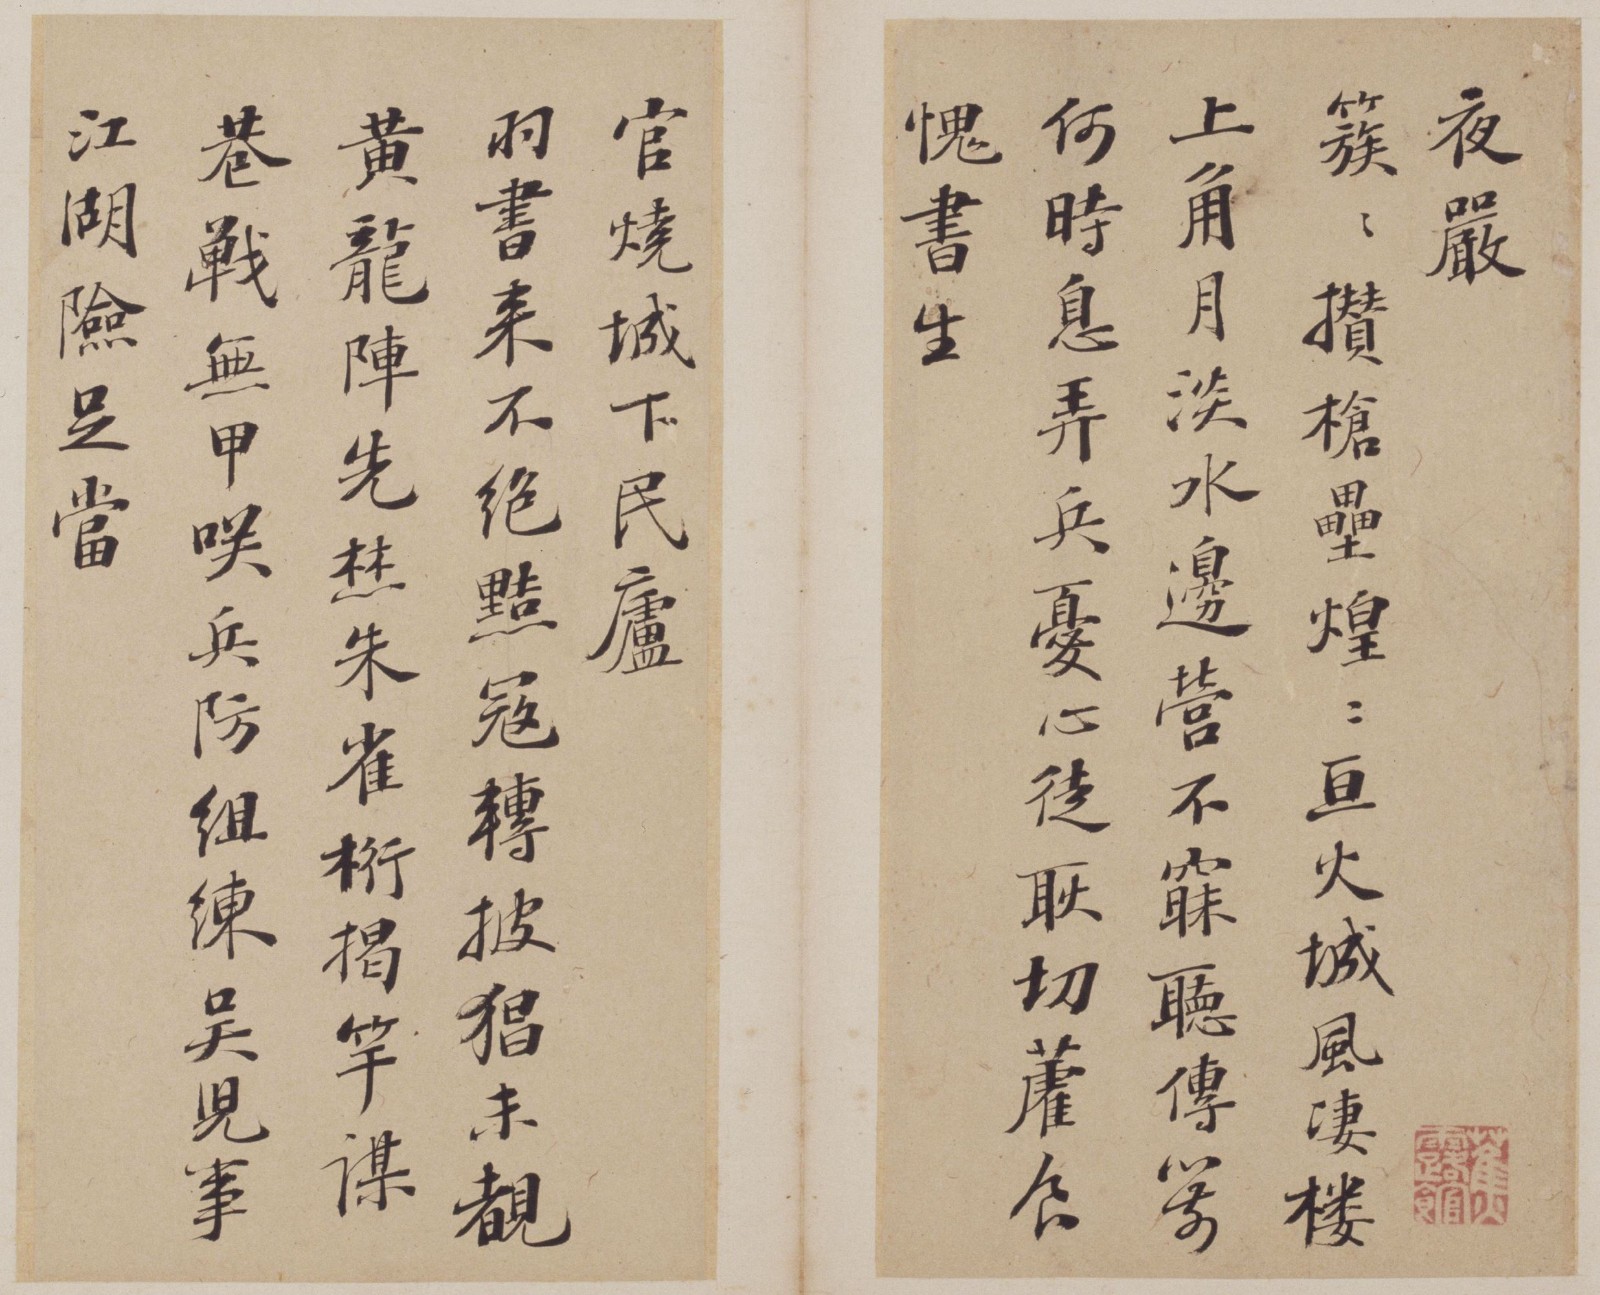 夜嚴
簇〻攢槍壘煌〻亘火城風淒楼
上角月淡水邊營不寐聽傳箭
何時息弄兵憂心徒耿切藿食
愧書生
官燒城下民廬
羽書来不絶㸃冦轉披猖未覩
黄龍陣先焚朱雀桁揭竿謀
巷戰無甲咲兵防組練吴児事
江湖險足當